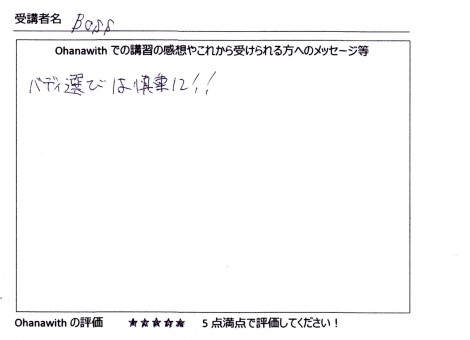 受講者名 Boss
Ohanawith での講習の感想やこれから受けられる方へのメッセージ等
バディ選びは慎重に!!
Ohanawith の評価 ★★★★★ 5 点満点で評価してください！